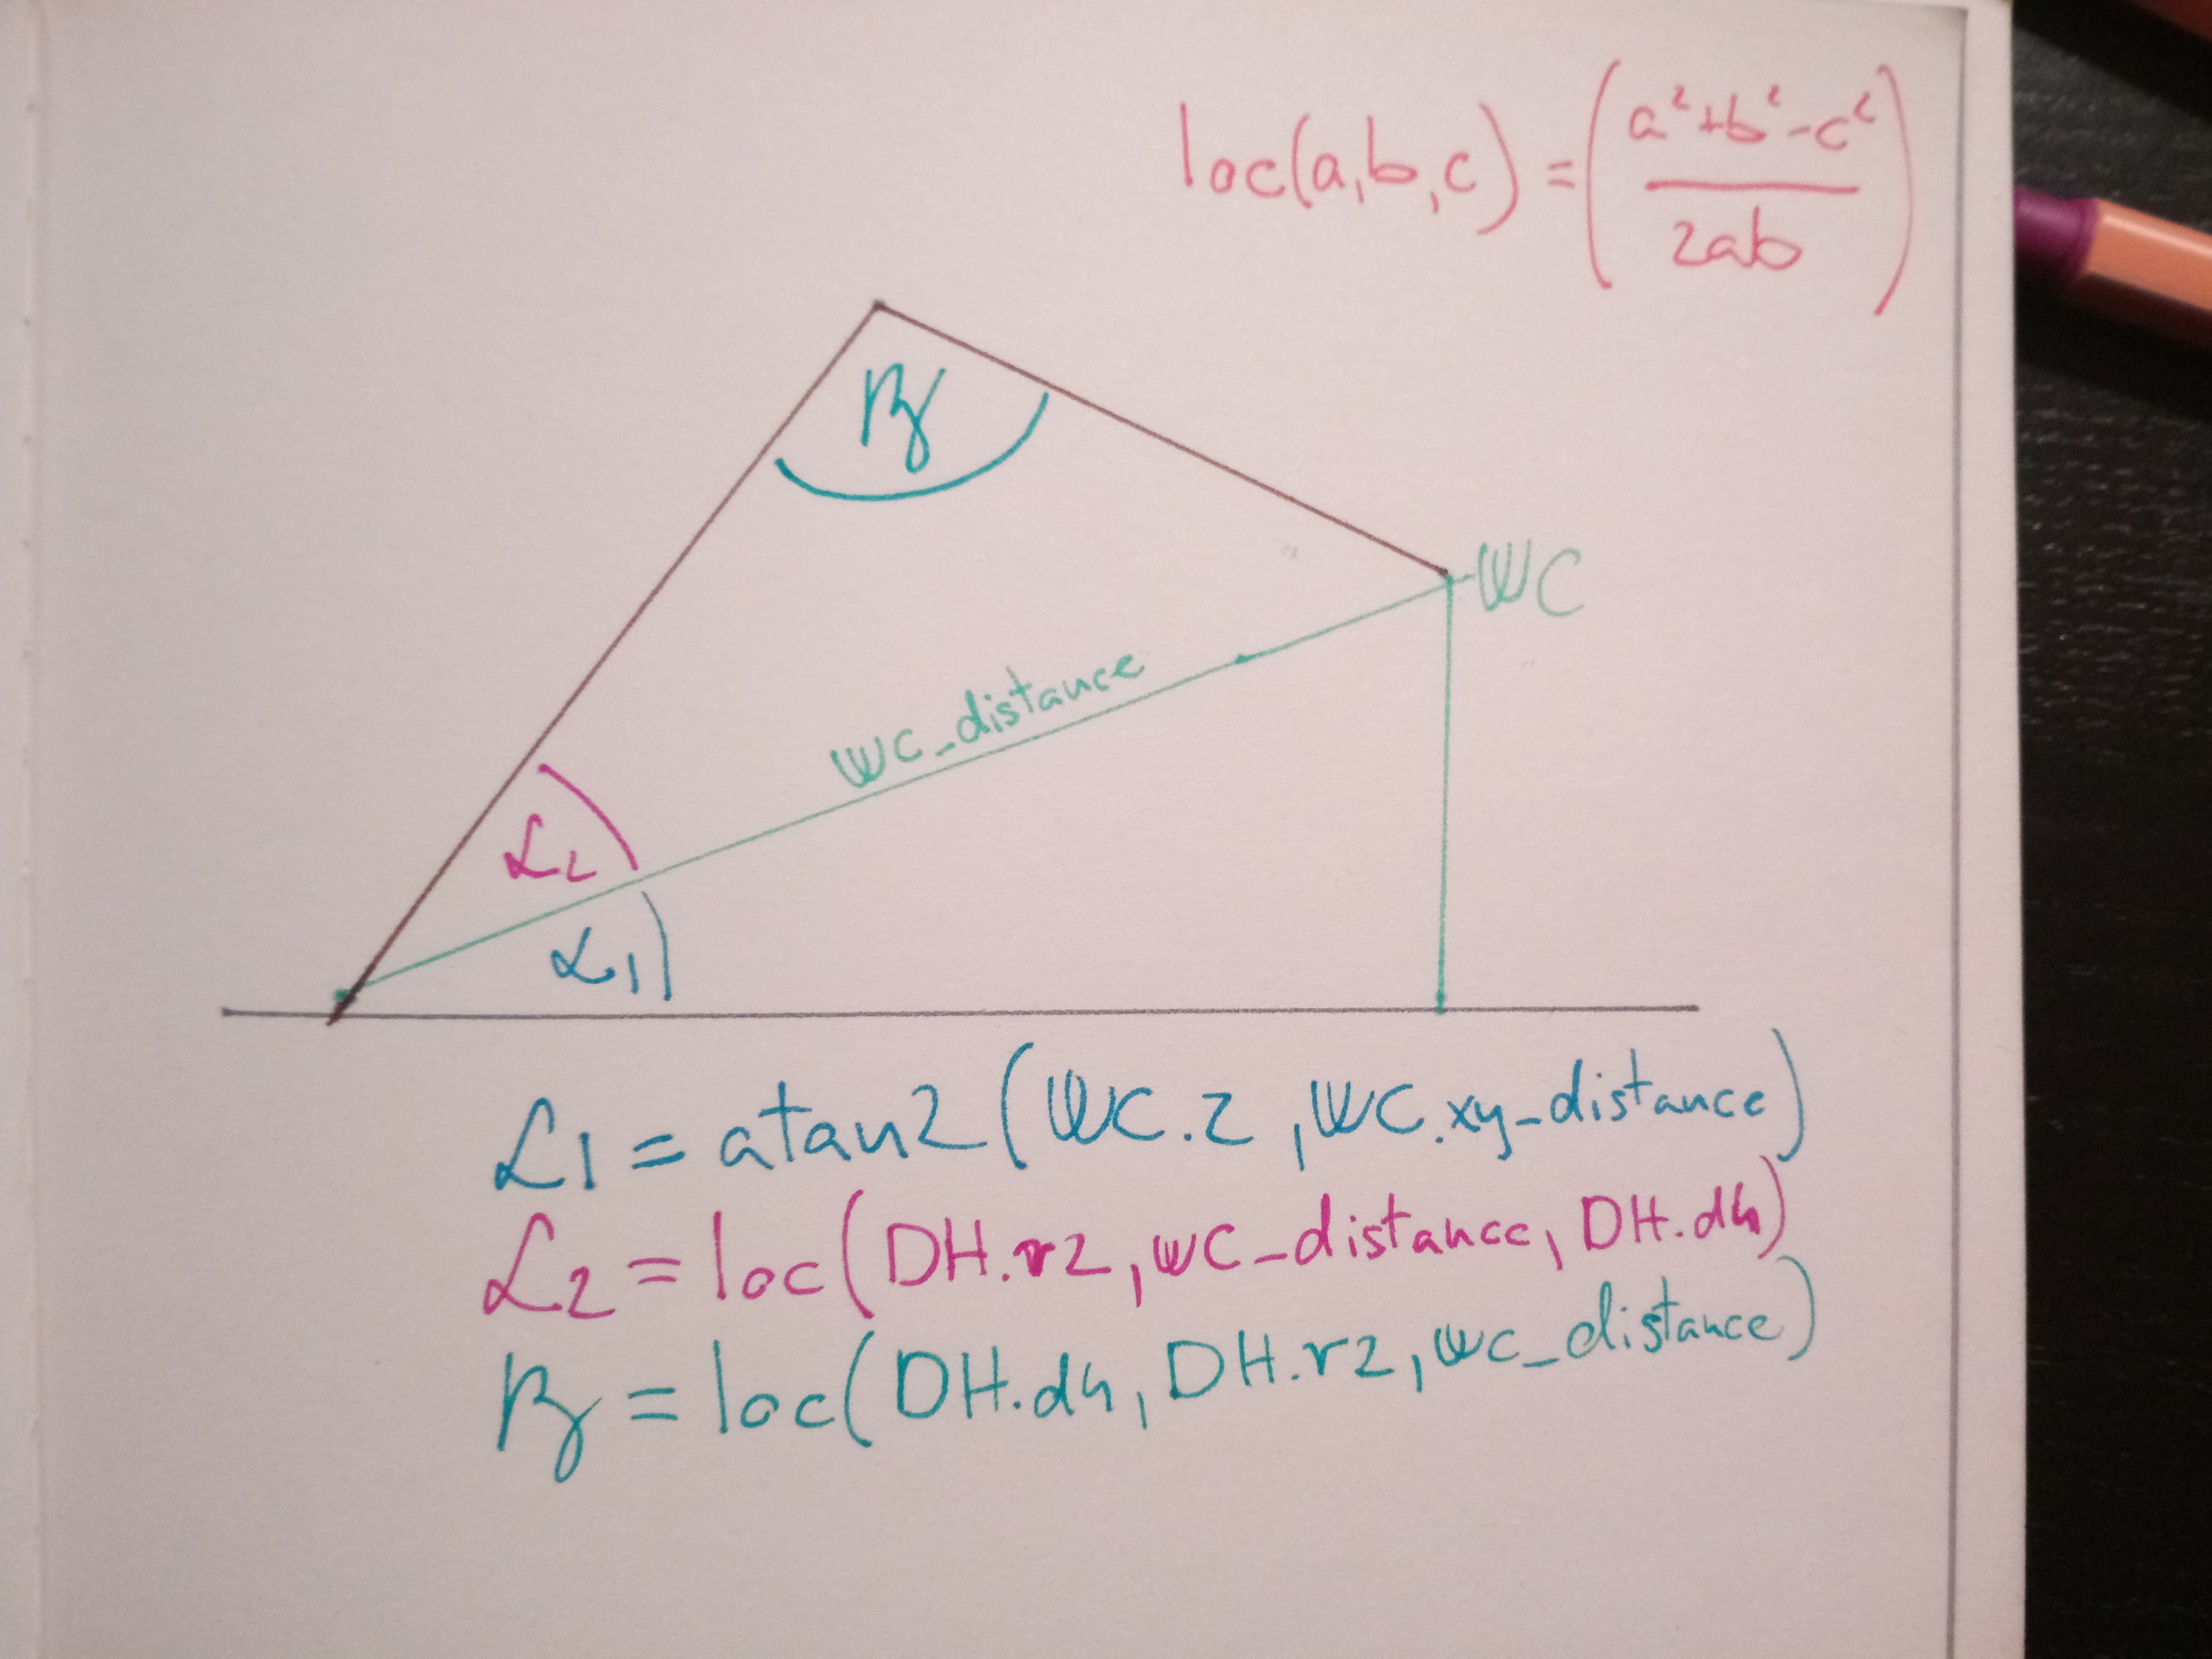 loc(a,b,c) = (a²+b²-c² / 2ab)
β
WC
wc_distance
α2
α1
α1 = atan2(WC.z, WC.xy_distance)
α2 = loc(DH.r2, wc_distance, DH.d4)
β = loc(DH.d4, DH.r2, wc_distance)